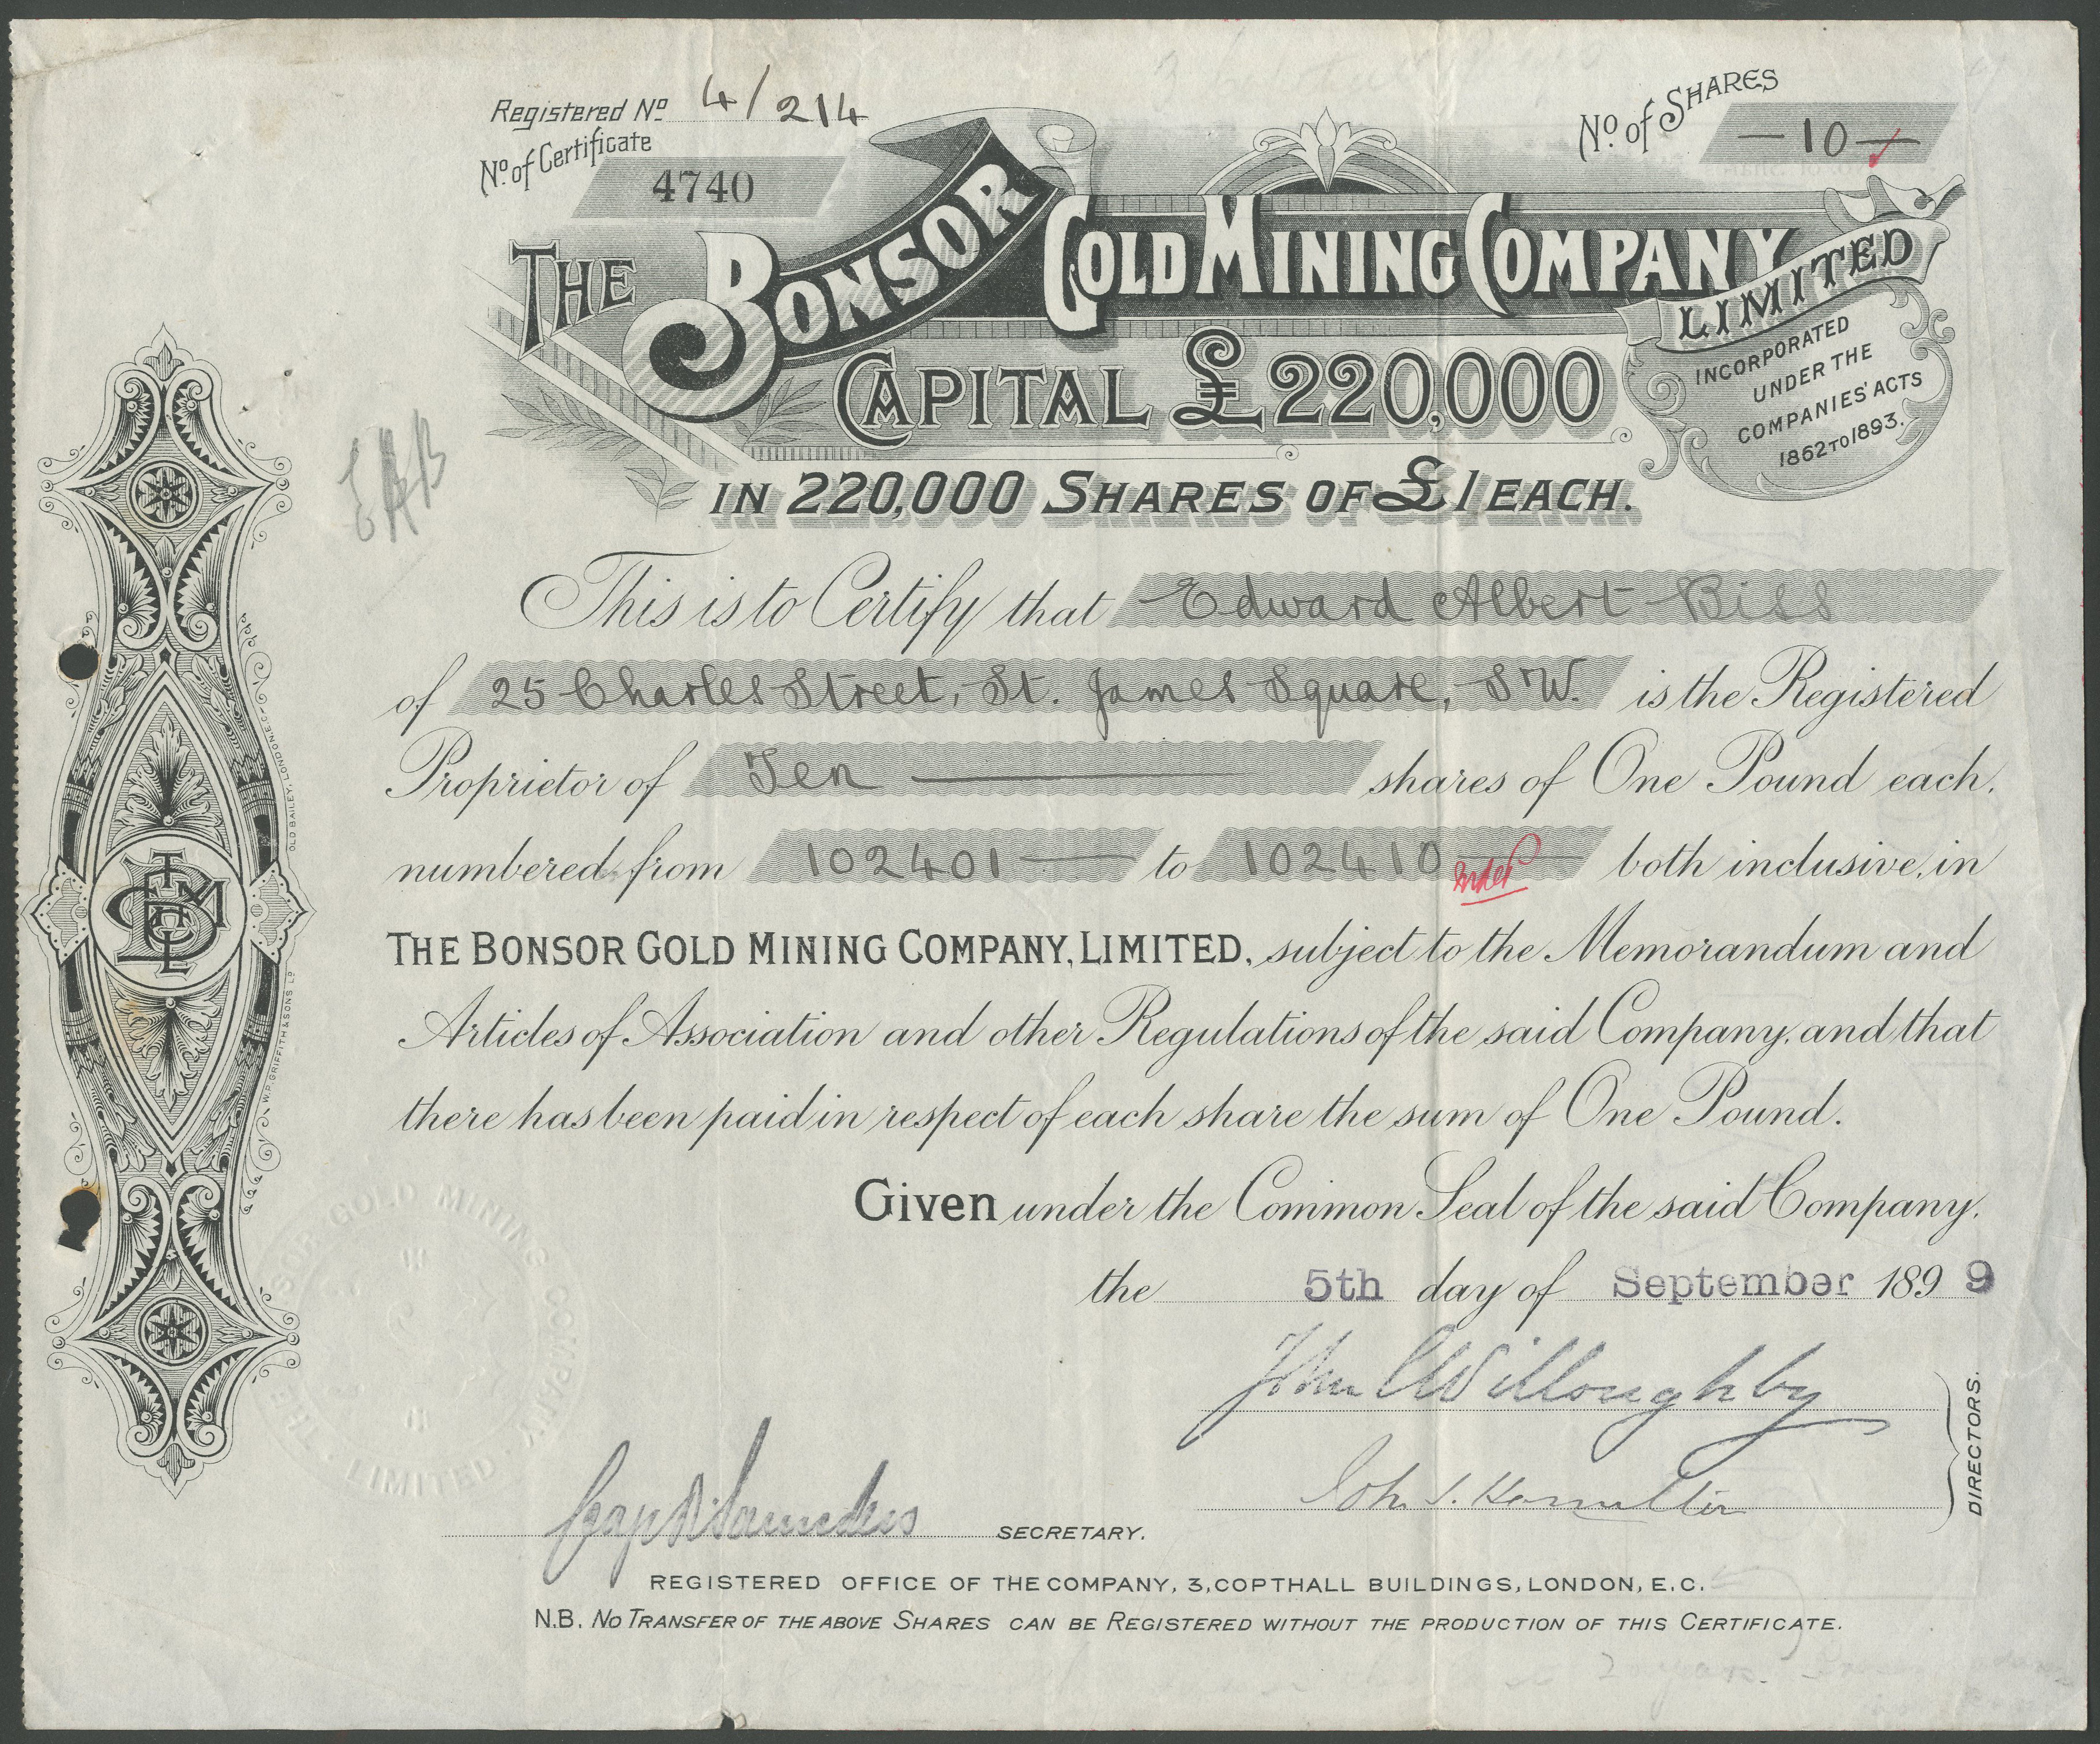 Registered No 4/214
No. of Certificate
4740
No. of SHARES
— 10 —
THE BONSOR GOLD MINING COMPANY
LIMITED
INCORPORATED
UNDER THE
COMPANIES' ACTS
1862 TO 1893.
CAPITAL £220,000
IN 220,000 SHARES OF £1 EACH.
EAB
This is to Certify that Edward Albert Biss
of 25 Charles Street, St. James Square, S.W. is the Registered
Proprietor of Ten — shares of One Pound each,
numbered from 102401 — to 102410 both inclusive, in
THE BONSOR GOLD MINING COMPANY, LIMITED, subject to the Memorandum and
Articles of Association and other Regulations of the said Company, and that
there has been paid in respect of each share the sum of One Pound.
Given under the Common Seal of the said Company,
the 5th day of September 1899
John C Willoughby
John S. Hamilton
DIRECTORS.
Saunders SECRETARY.
REGISTERED OFFICE OF THE COMPANY, 3, COPTHALL BUILDINGS, LONDON, E.C.
N.B. NO TRANSFER OF THE ABOVE SHARES CAN BE REGISTERED WITHOUT THE PRODUCTION OF THIS CERTIFICATE.
W.P. GRIFFITH & SONS LD OLD BAILEY, LONDON, E.C.
THE BONSOR GOLD MINING COMPANY LIMITED